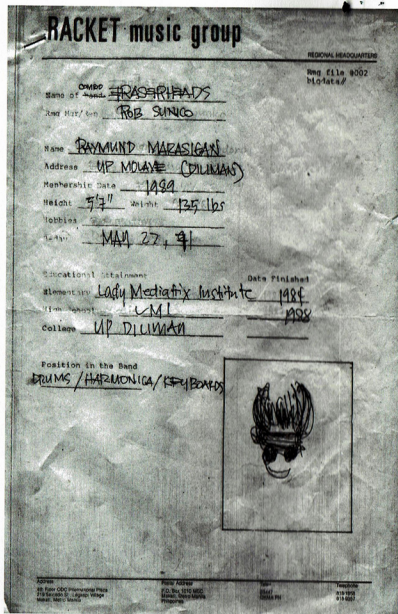 RACKET music group
REGIONAL HEADQUARTERS
Rmg file #002
biodata//
COMBO
Name of band ERASERHEADS
ROB SUNICO
Name RAYMUND MARASIGAN
Address UP MOLAVE (DILIMAN)
Membership Date 1989
Height 5'7" Weight 135 lbs
Hobbies
MAY 27, 91
Educational Attainment Date Finished
Elementary Lady Mediatrix Institute 1984
High School LMI 1988
College UP DILIMAN
Position in the Band
DRUMS / HARMONICA / KEYBOARDS
Address Postal Address Telephone
P.O. Box 1010 MCC